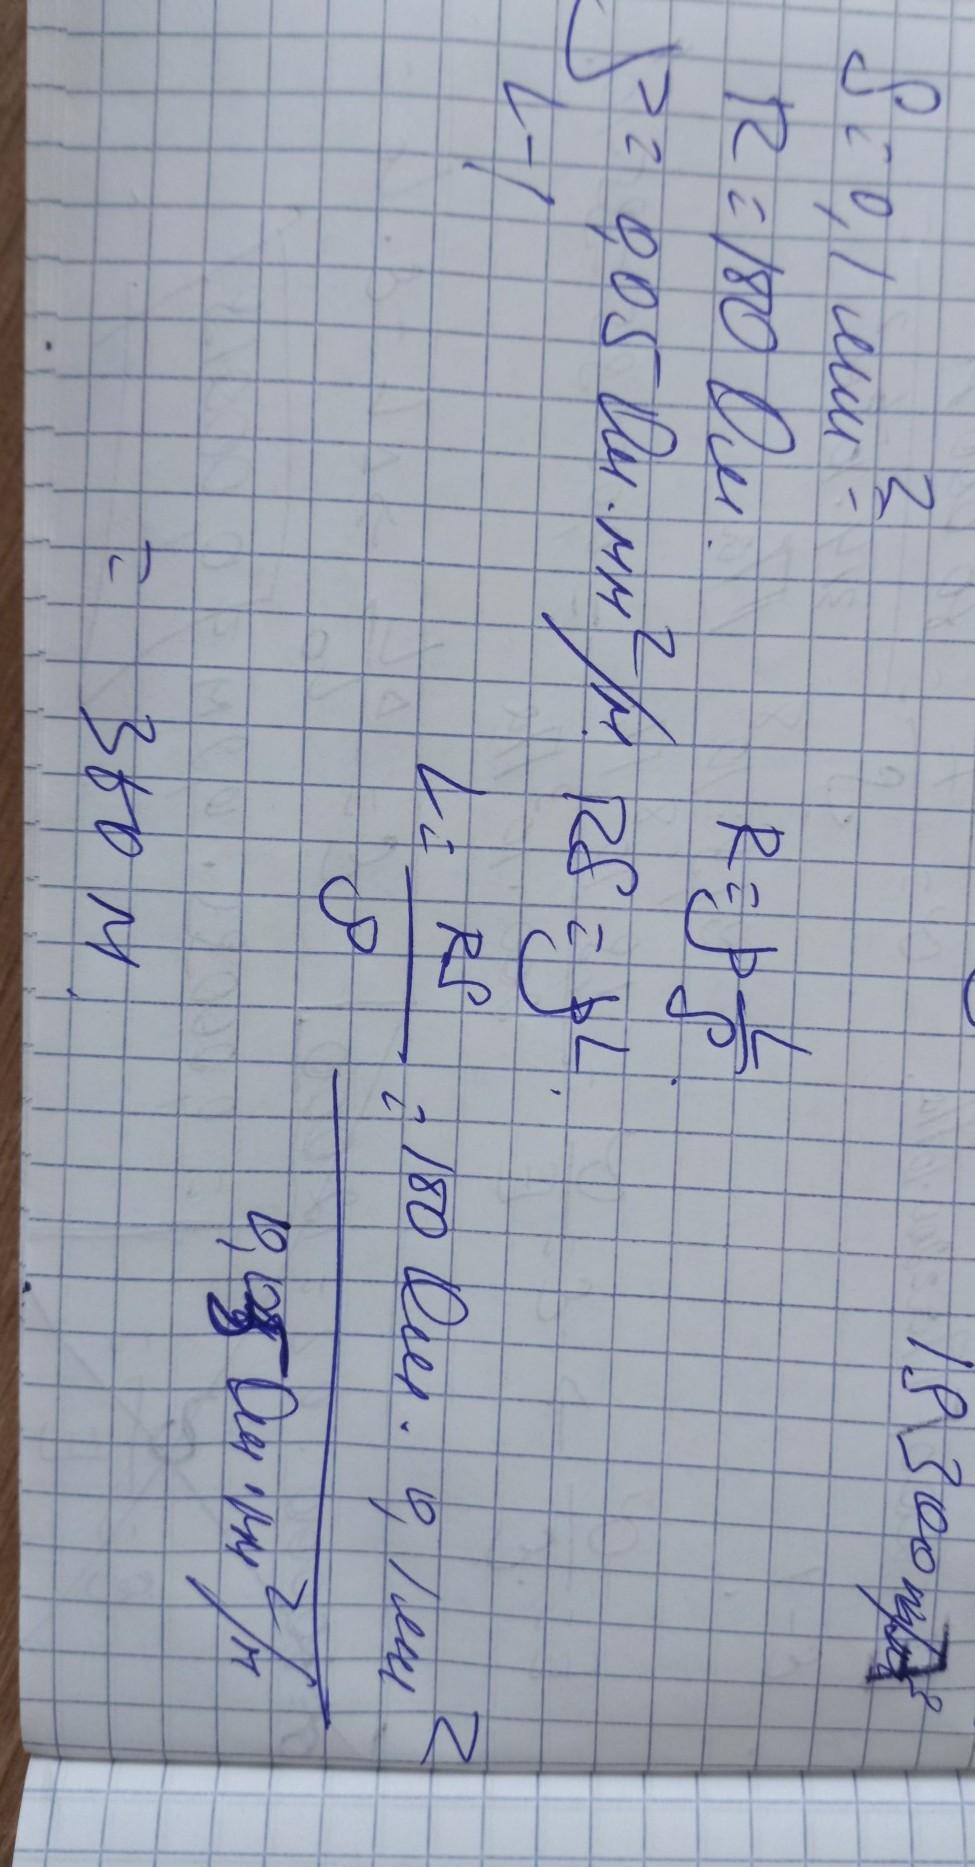 S = 0,1 мм²
R = 180 Ом.
ρ = 0,05 Ом·мм²/м
L - ?
R = ρ L/S
RS = ρL
L = RS/ρ = 180 Ом · 0,1 мм² / 0,05 Ом·мм²/м
= 360 м